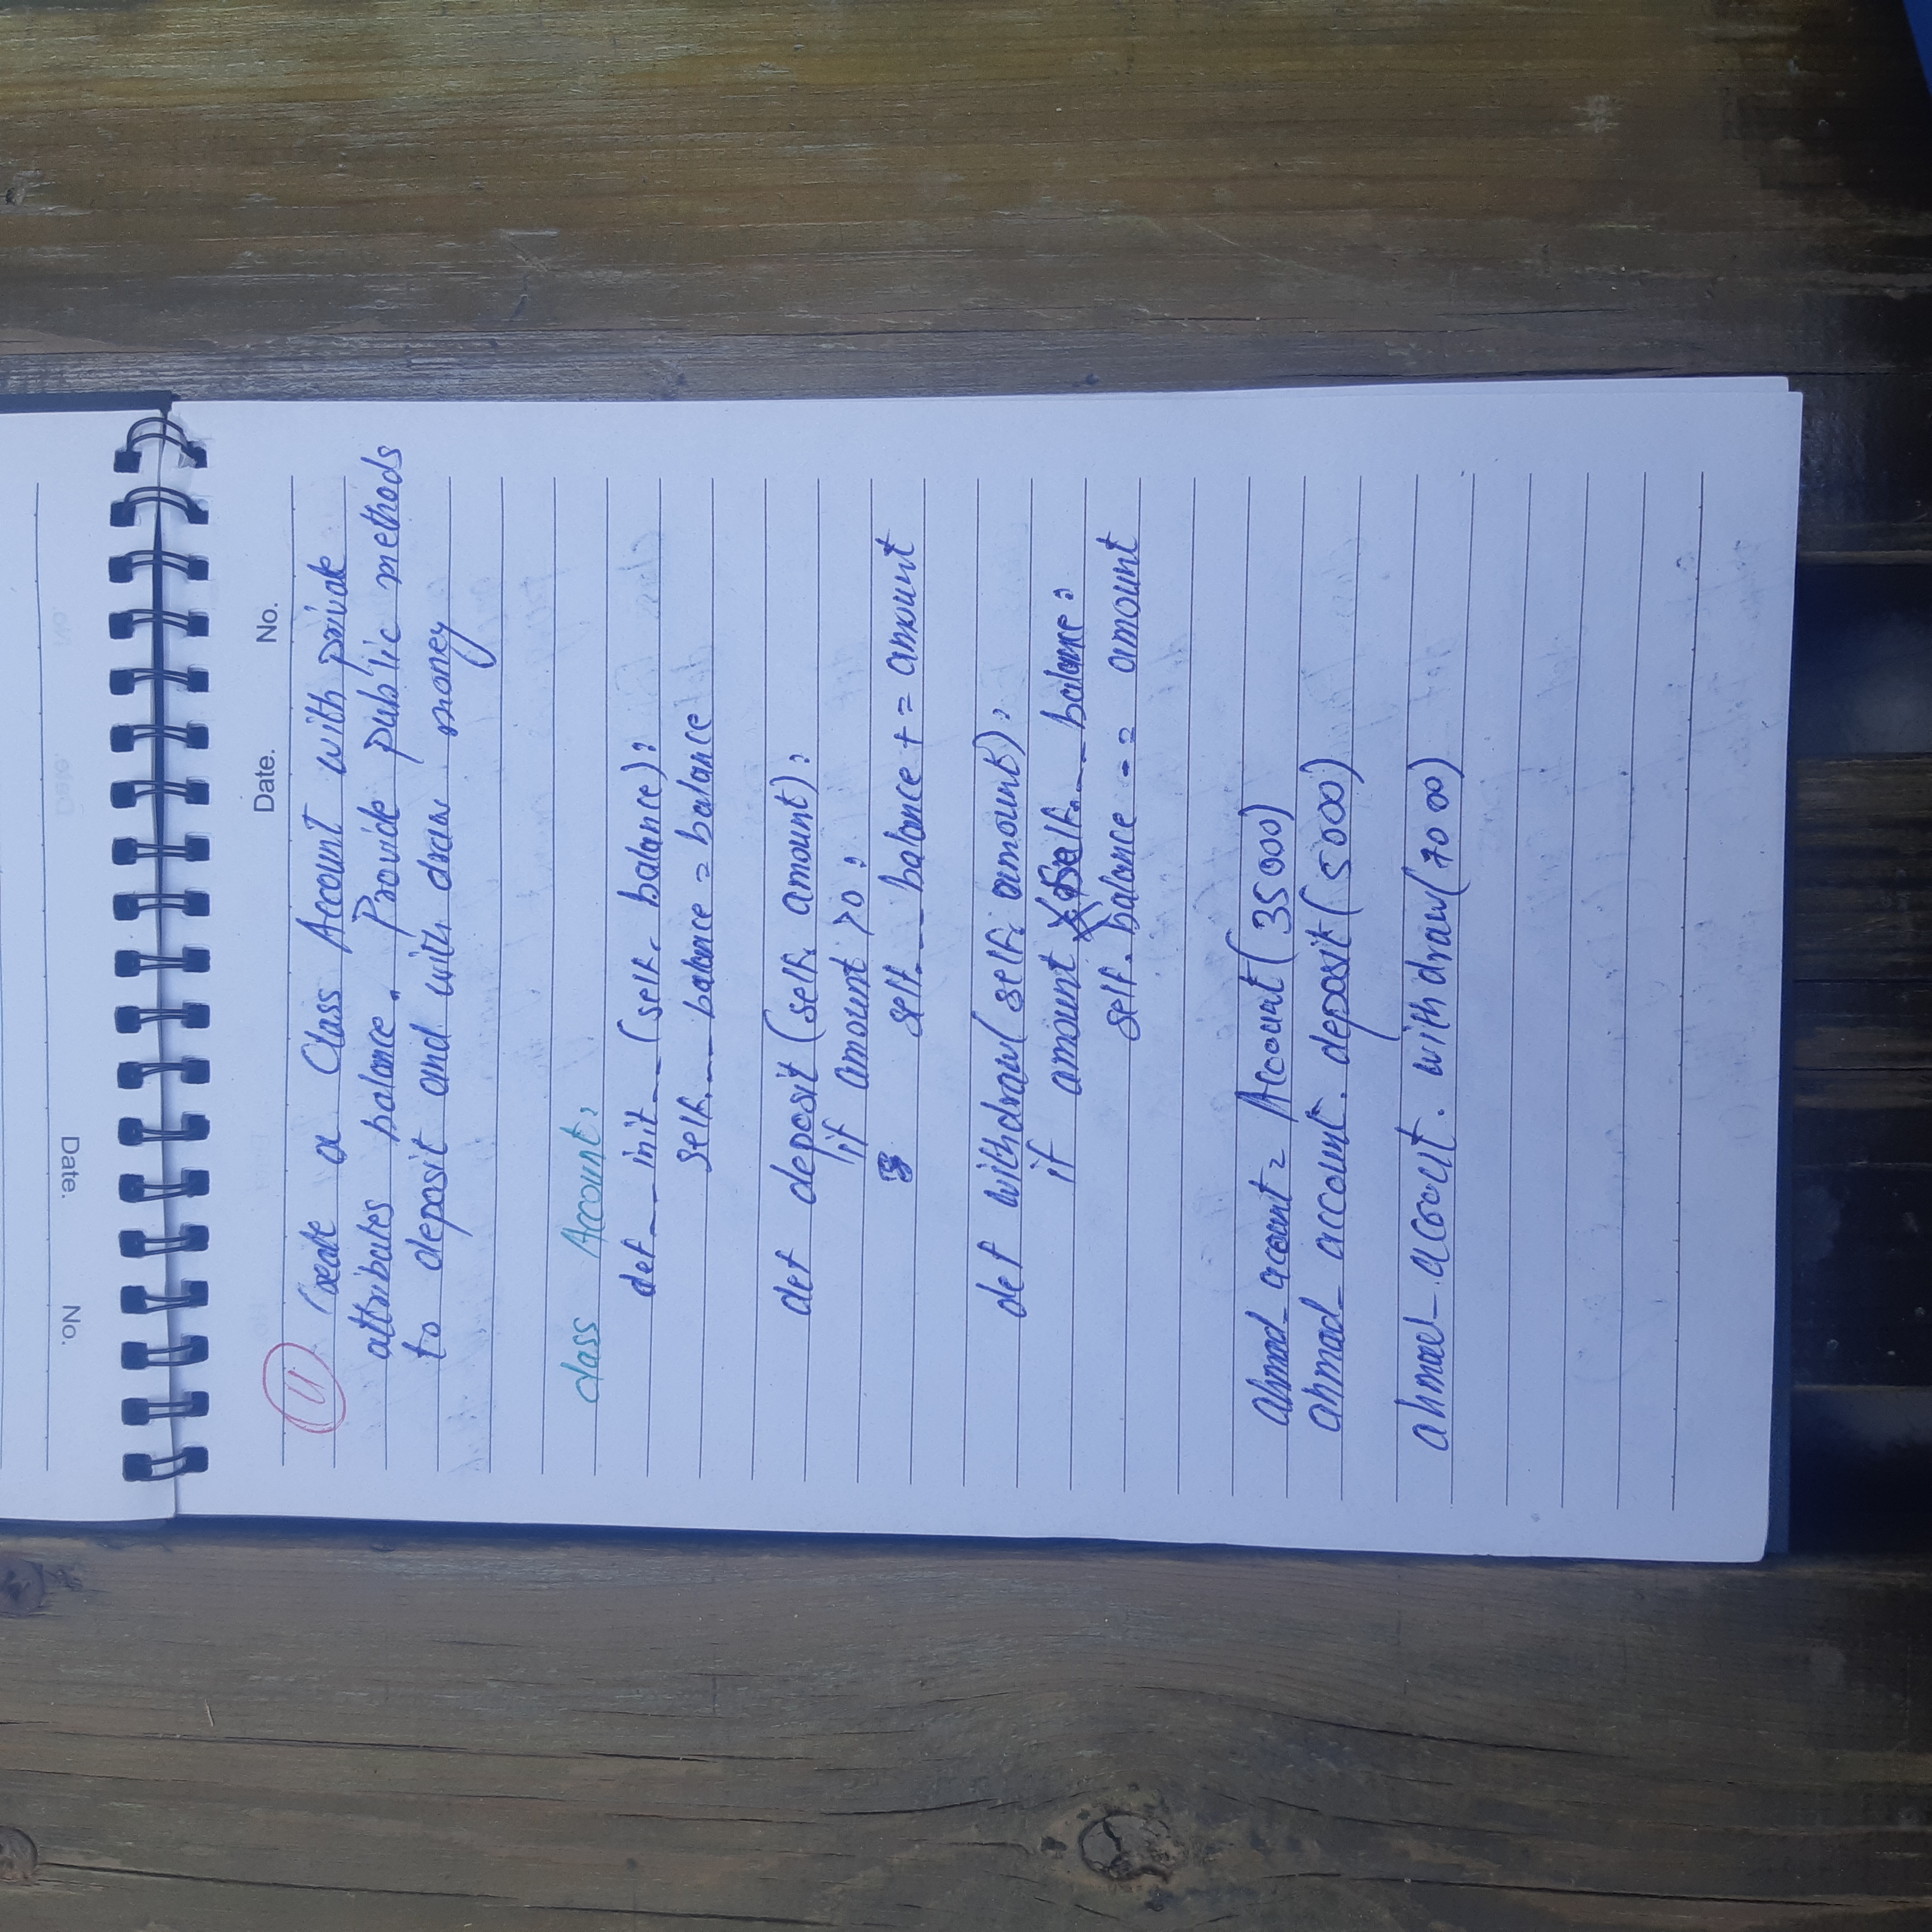 No. Date.
Date. No.
11 Create a Class Account with private
attributes balance. Provide public methods
to deposit and with draw money
class Account:
def __init__ (self, balance):
self.__balance = balance
def deposit (self, amount):
if amount >0:
self.__balance += amount
def withdraw(self, amount):
if amount self.__balance:
self.balance -= amount
ahmad_account = Account(35000)
ahmad_account.deposit(5000)
ahmad_account.withdraw(7000)